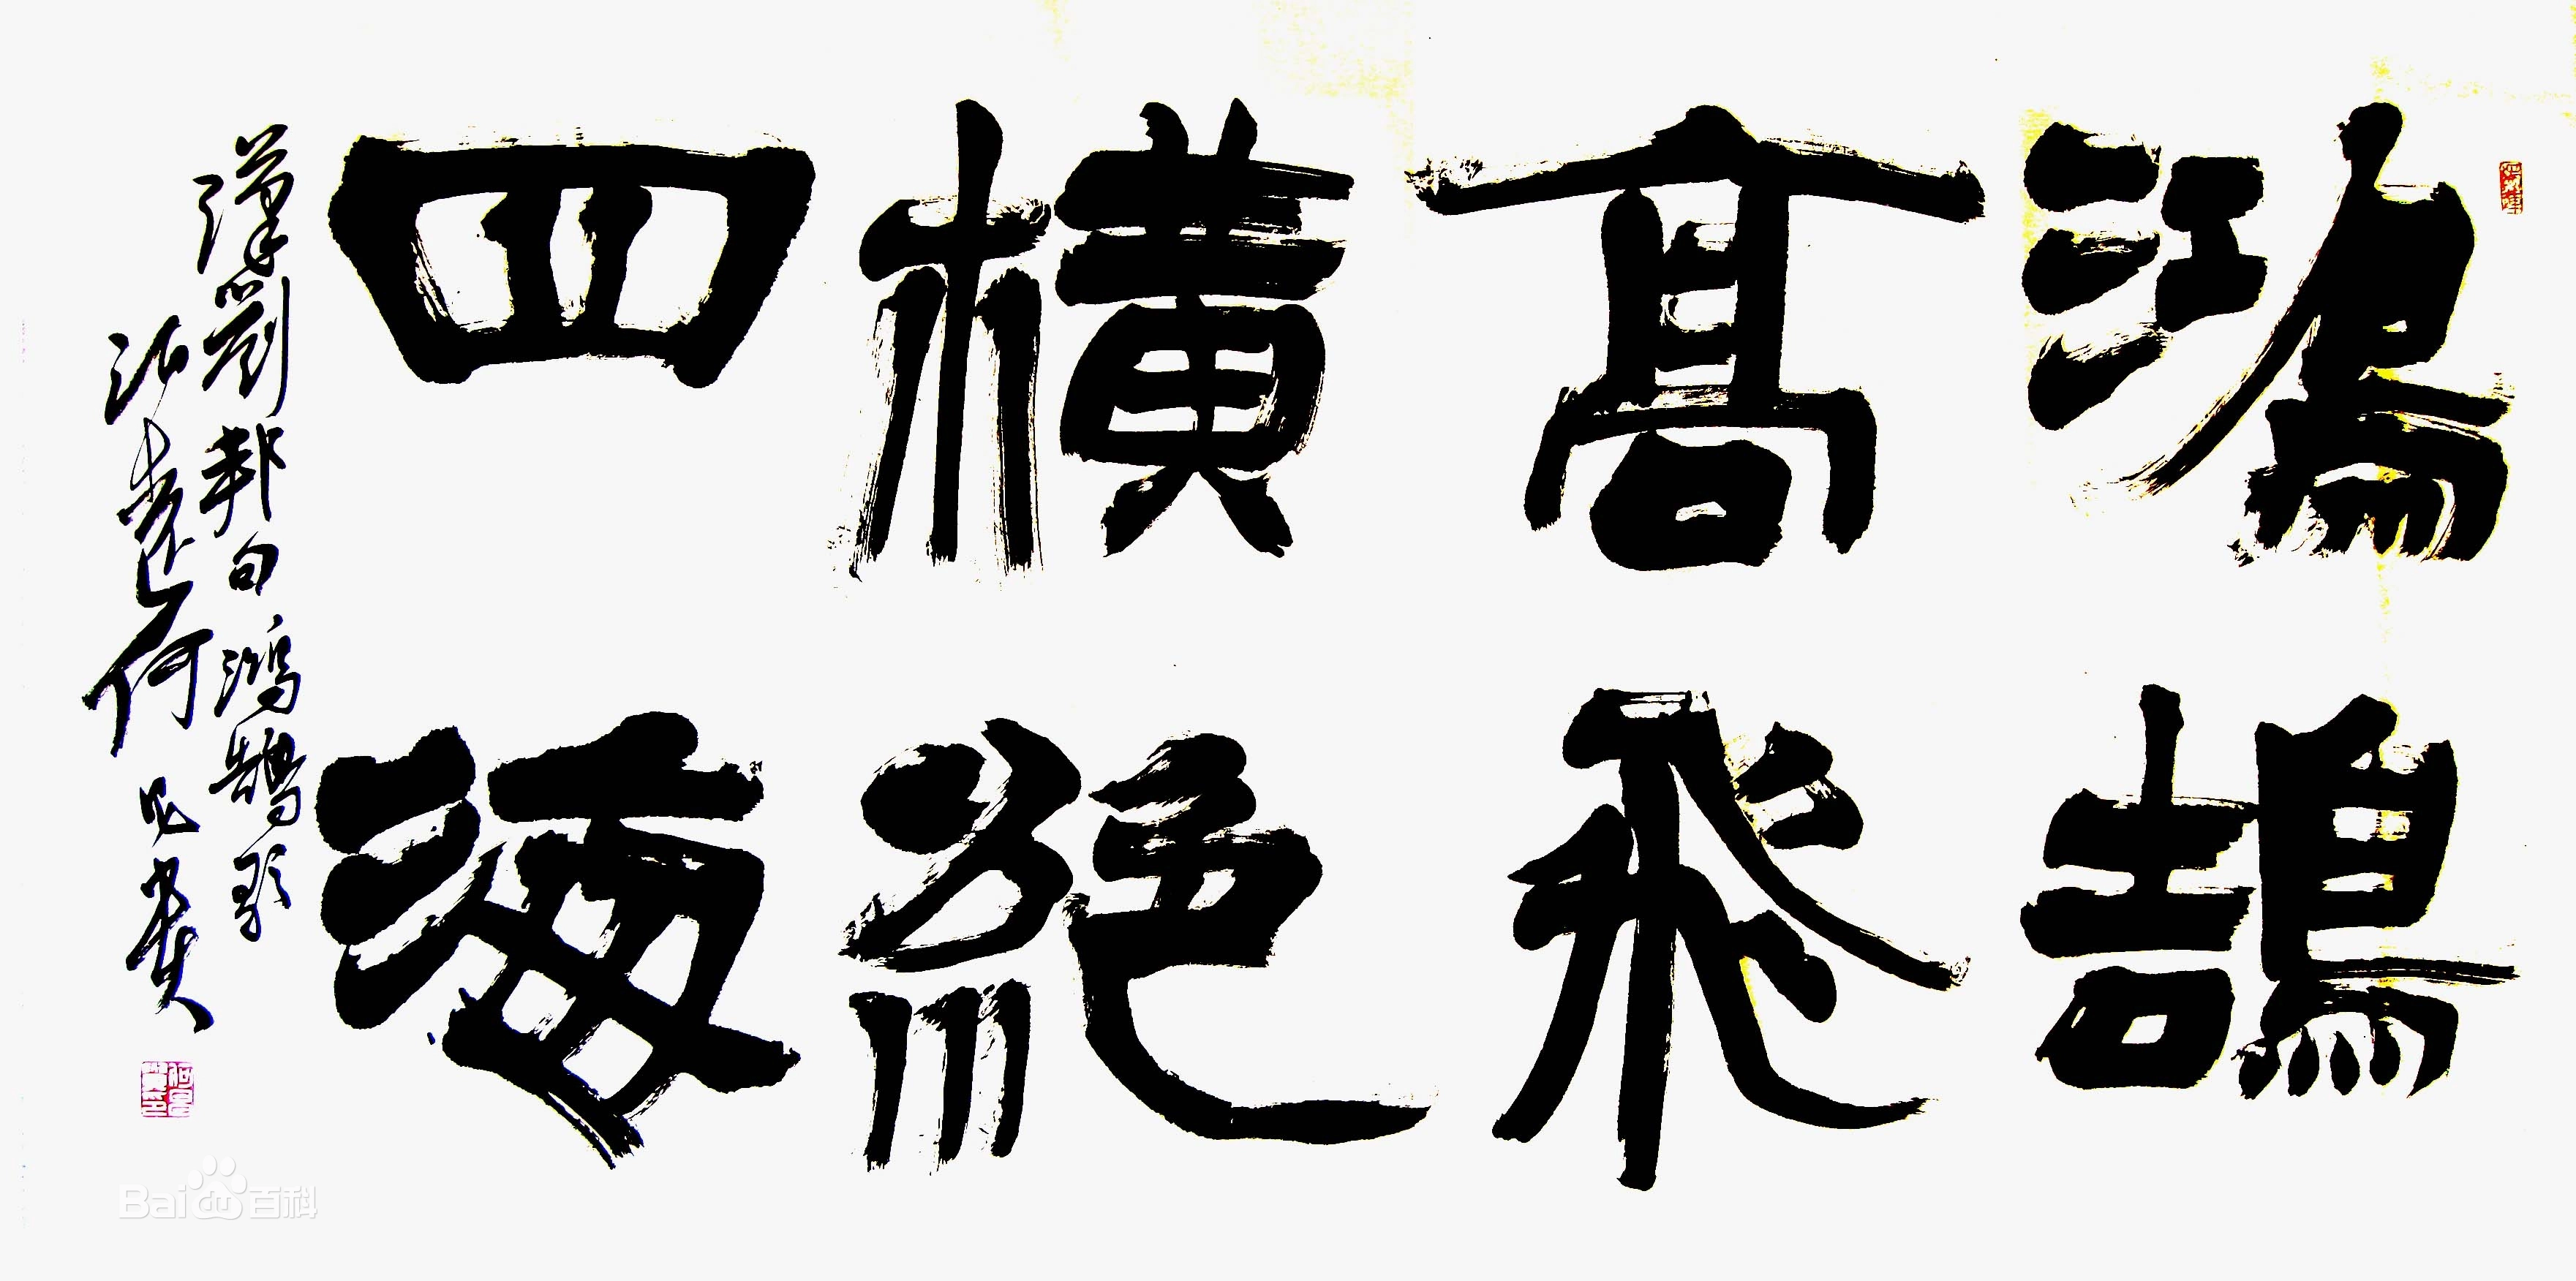 鴻鵠
高飛
橫絕
四海
漢劉邦句鴻鵠歌
何昌貴
Bai百科